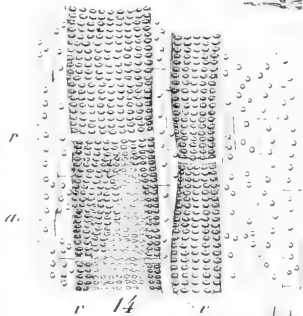 r
a.
r 14 r